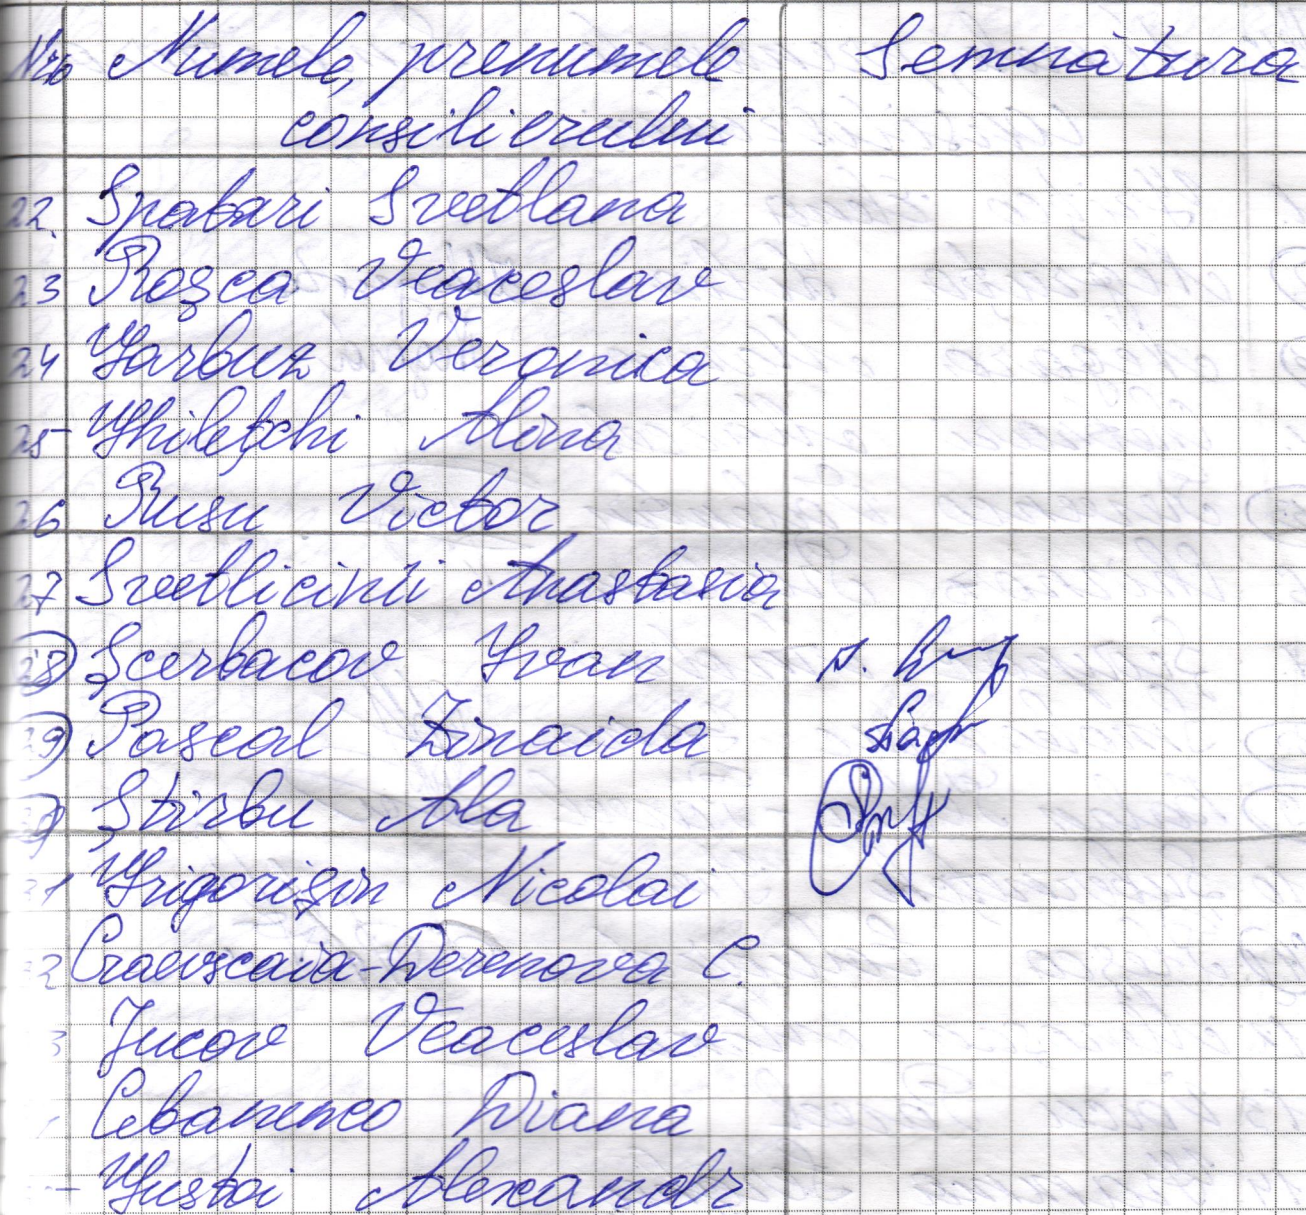 Nr Numele, prenumele Semnătura
consilierului
22. Spatari Svetlana
23 Roșca Veaceslav
24 Garbuz Veronica
25 Ghilețchi Alina
26 Rusu Victor
27 Svetlicinîi Anastasia
28 Șcerbacov Ivan
29 Pascal Zinaida
30 Știrbu Ala
31 Grigorișin Nicolai
Craevscaia-Derenova C.
Jucov Veaceslav
Cebanenco Diana
Gustoi Alexandr